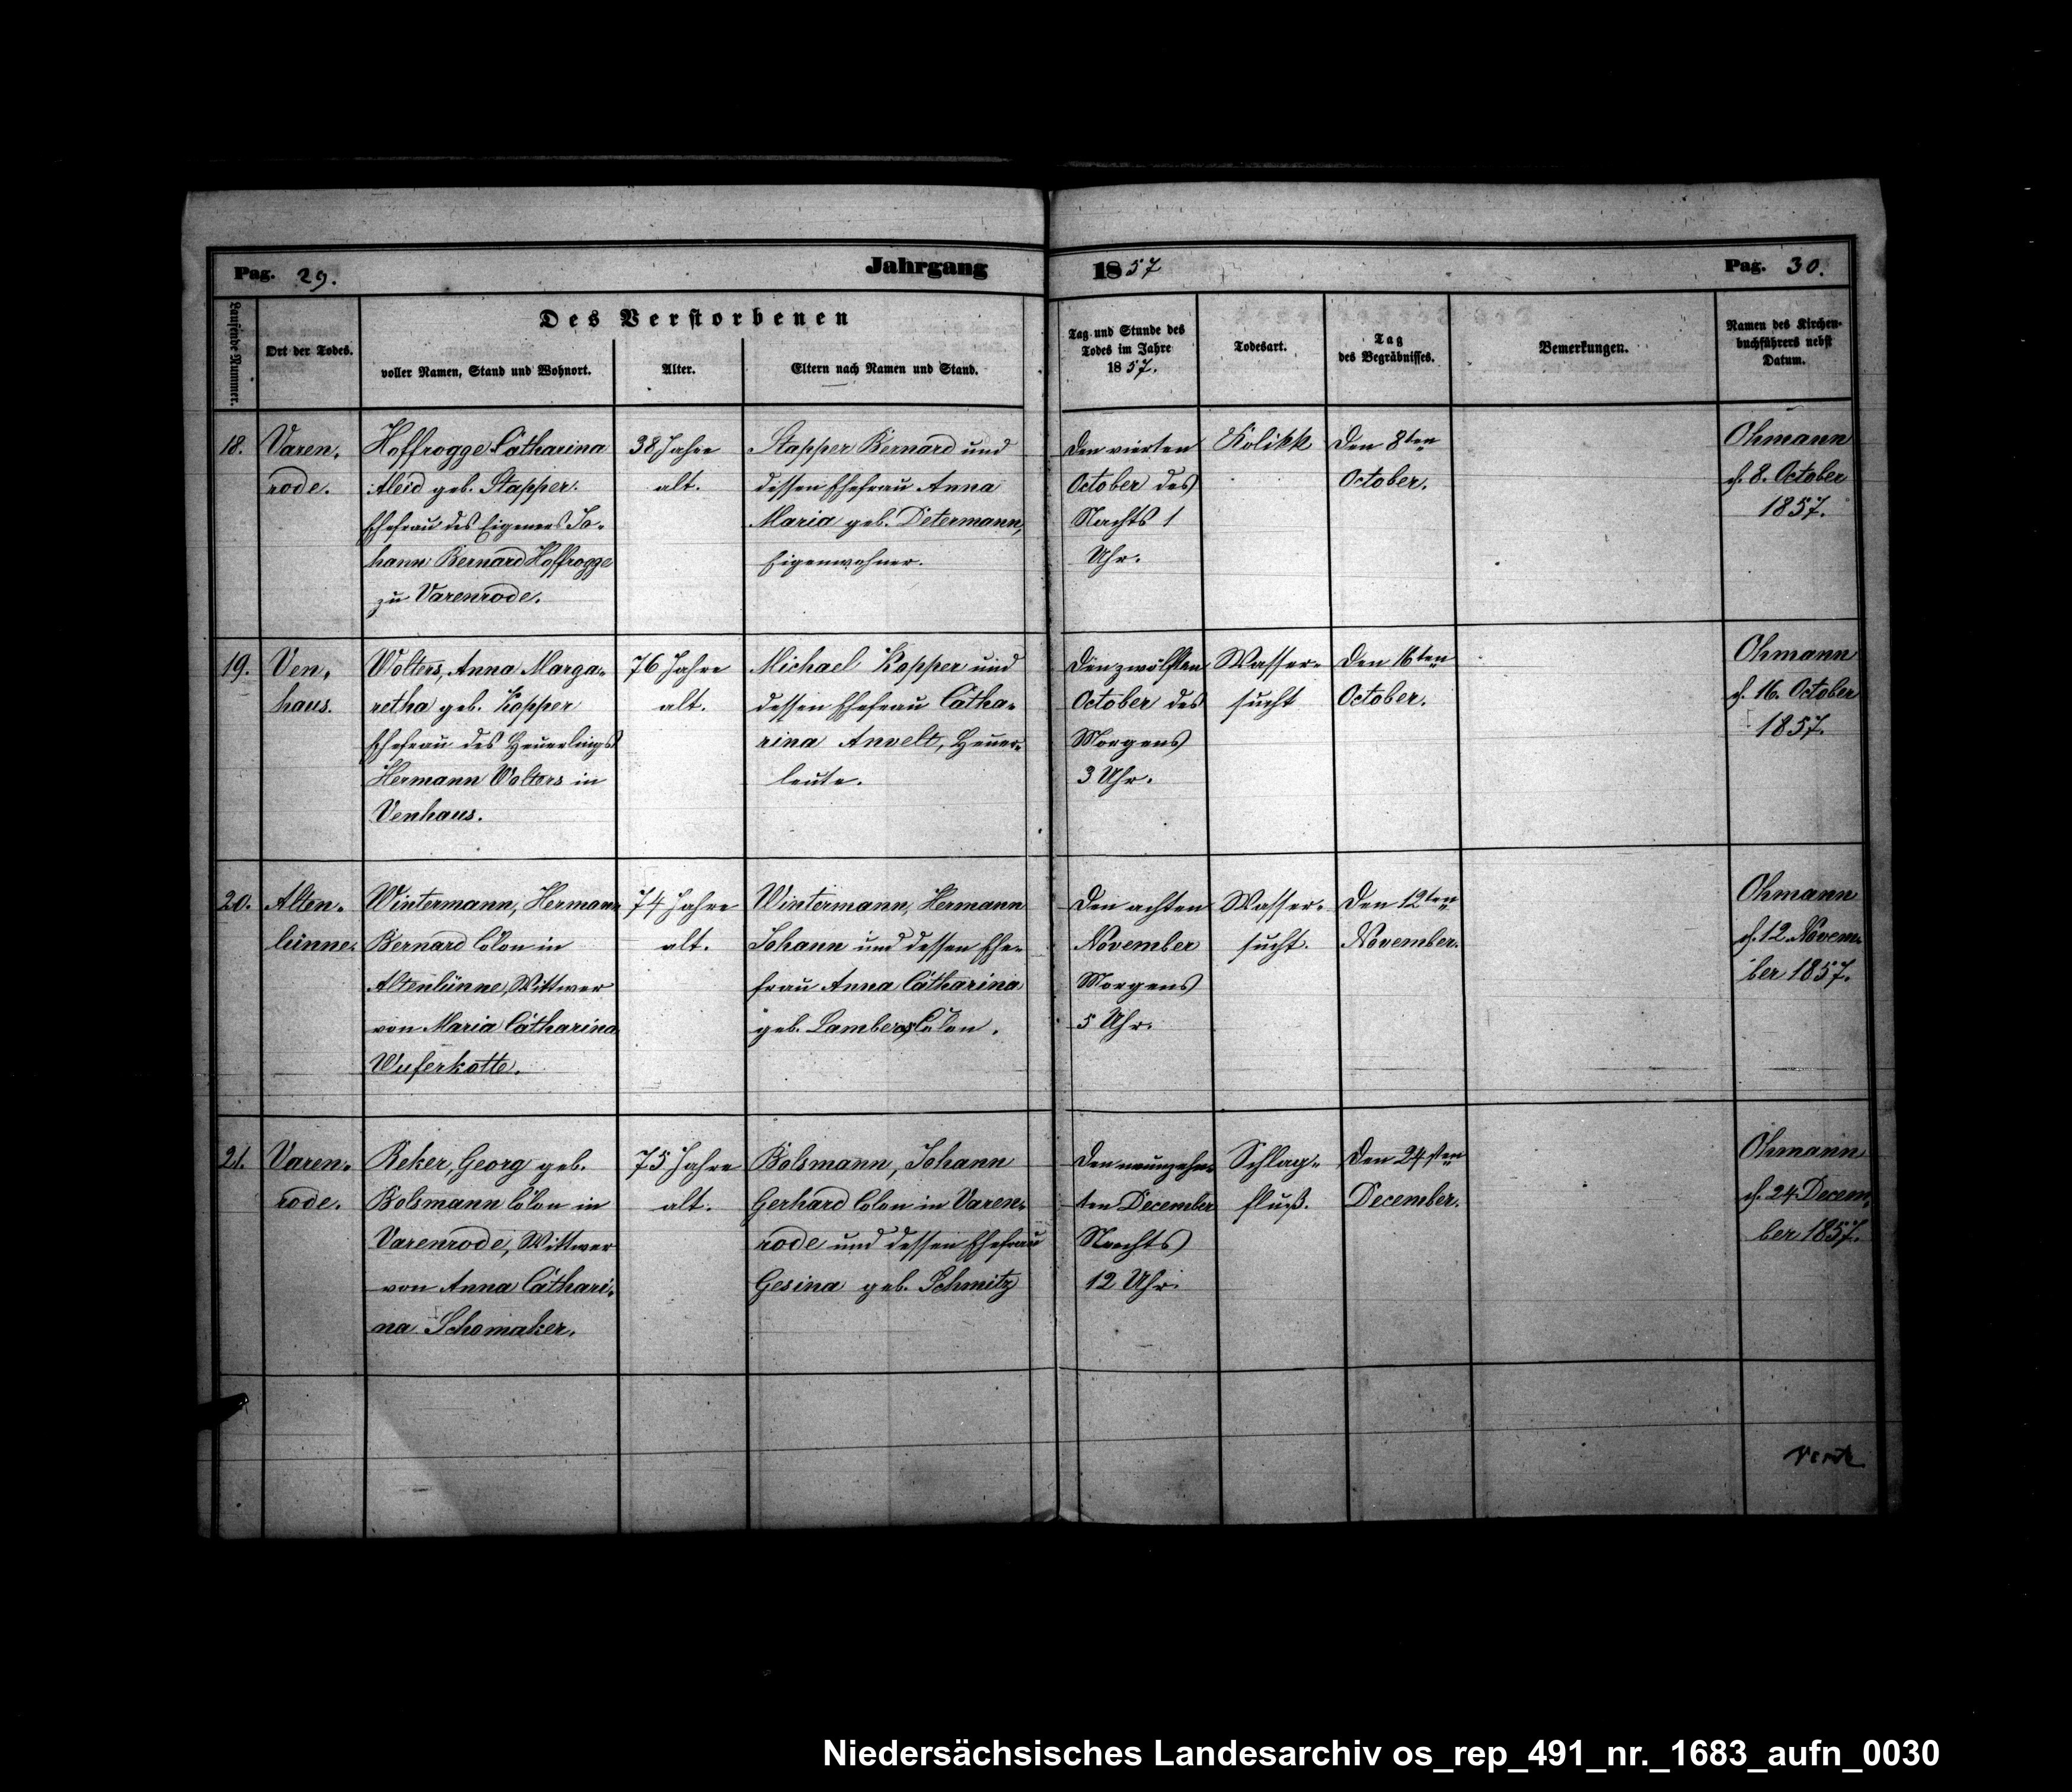 Pag. 29.
Jahrgang
1857
Pag. 30.
Laufende Nummer.
Ort der Todes.
Des Verstorbenen
voller Namen, Stand und Wohnort.
Alter.
Eltern nach Namen und Stand.
Tag und Stunde des
Todes im Jahre
1857.
Todesart.
Tag
des Begräbnisses.
Bemerkungen.
Namen des Kirchen-
buchführers nebst
Datum.
18.
Varen-
rode.
Hoffrogge Catharina
Aleid geb. Stapper.
Ehefrau des Eigeners Jo-
hann Bernard Hoffrogge
zu Varenrode.
38 Jahre
alt.
Stapper Bernard und
dessen Ehefrau Anna
Maria geb. Determann,
Eigenwohner.
Den vierten
October des
Nachts 1
Uhr.
Kolikk
Den 8ten
October.
Ohmann
d. 8. October
1857.
19.
Ven-
haus.
Wolters, Anna Marga-
retha geb. Kopper
Ehefrau des Heuerlings
Hermann Wolters in
Venhaus.
76 Jahre
alt.
Michael Kopper und
dessen Ehefrau Catha-
rina Anvelt, Heuer-
leute.
Den zwölften
October des
Morgens
3 Uhr.
Wasser-
sucht
Den 16ten
October.
Ohmann
d. 16. October
1857.
20.
Alten-
lünne.
Wintermann, Hermann
Bernard Colon in
Altenlünne, Wittwer
von Maria Catharina
Wuferkotte.
74 Jahre
alt.
Wintermann, Hermann
Johann und dessen Ehe-
frau Anna Catharina
geb. Lambers, Colon.
Den achten
November
Morgens
5 Uhr.
Wasser-
sucht.
Den 12ten
November.
Ohmann
d. 12. Novem-
ber 1857.
21.
Varen-
rode.
Reker, Georg geb.
Bolsmann Colon in
Varenrode, Wittwer
von Anna Cathari-
na Schomaker.
75 Jahre
alt.
Bolsmann, Johann
Gerhard Colon in Varen-
rode und dessen Ehefrau
Gesina geb. Schmitz
Den neunzehn-
ten December
Nachts
12 Uhr.
Schlag-
fluß.
Den 24sten
December.
Ohmann
d. 24. Decem-
ber 1857.
Niedersächsisches Landesarchiv os_rep_491_nr._1683_aufn_0030